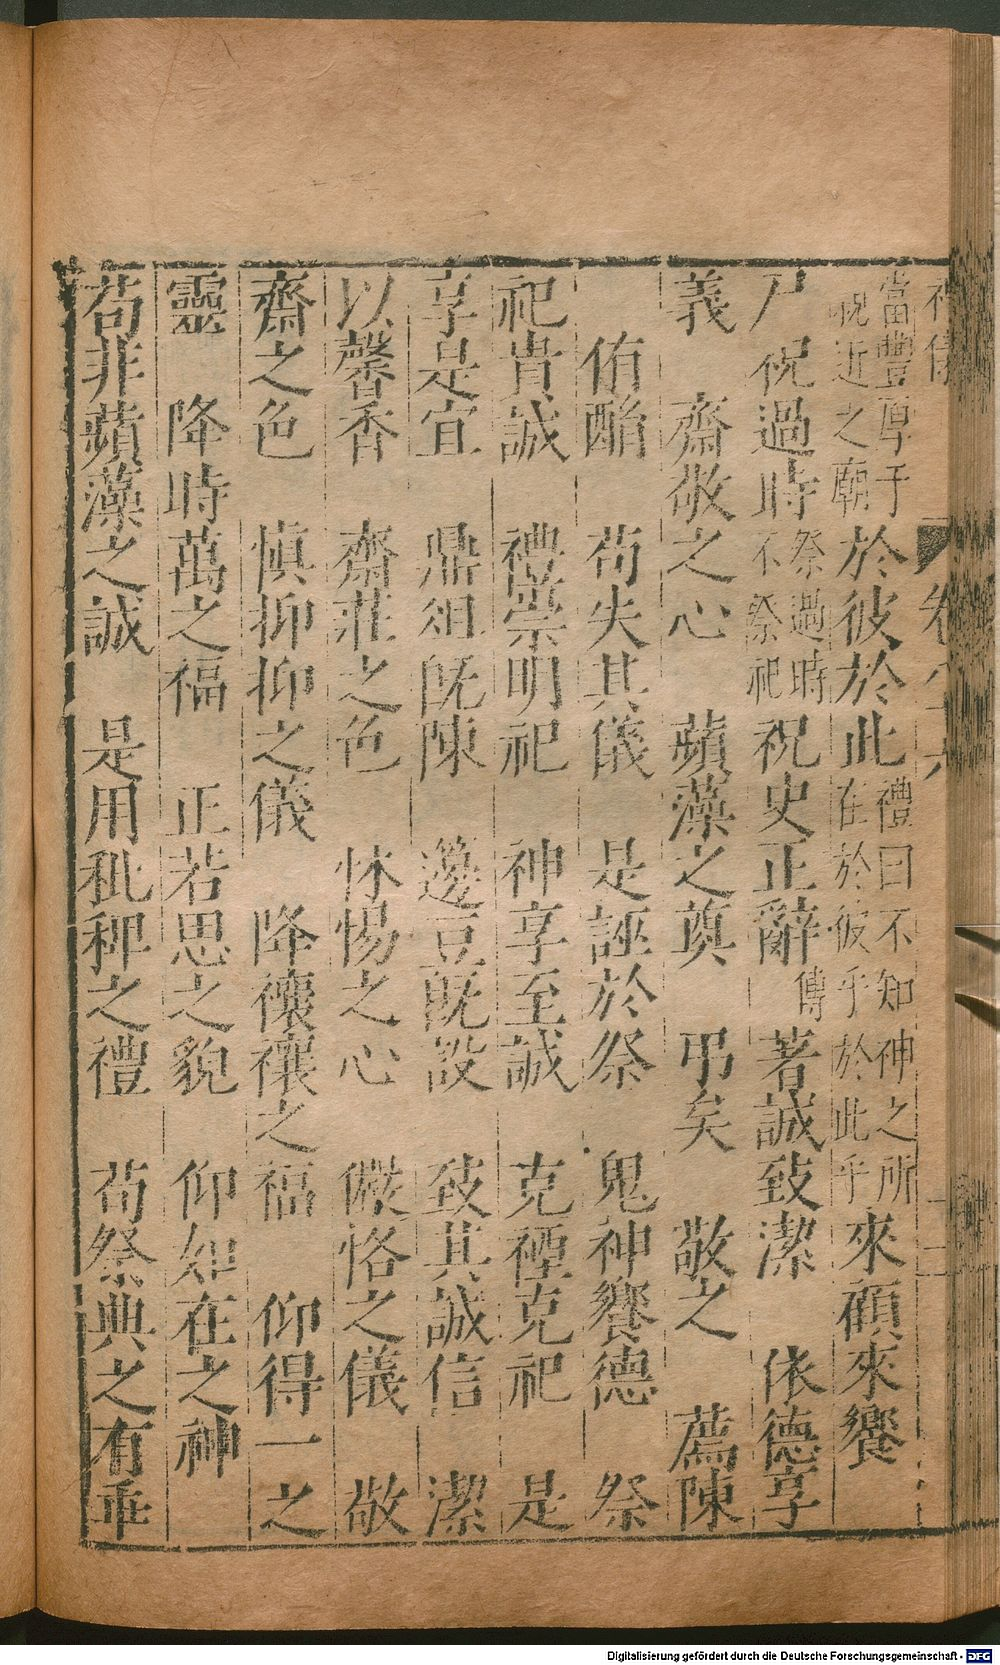 當豐厚于祝近之廟於彼於此禮曰不知神之所在於彼乎於此乎來顧來饗
尸祝過時祭過時不祭祀祝史正辭傳著誠致潔依德享
義齋敬之心蘋藻之奠弔矣敬之薦陳
侑酳苟失其儀是誣於祭鬼神饗德祭
祀貴誠禮崇明祀神享至誠克禋克祀是
享是宜鼎俎既陳籩豆既設致其誠信潔
以馨香齋莊之色怵惕之心儼恪之儀敬
齋之色慎抑抑之儀降穰穰之福仰得一之
靈降時萬之福正若思之貌仰如在之神
苟非蘋藻之誠是用秕稗之禮苟祭典之有乖
Digitalisierung gefördert durch die Deutsche Forschungsgemeinschaft - DFG